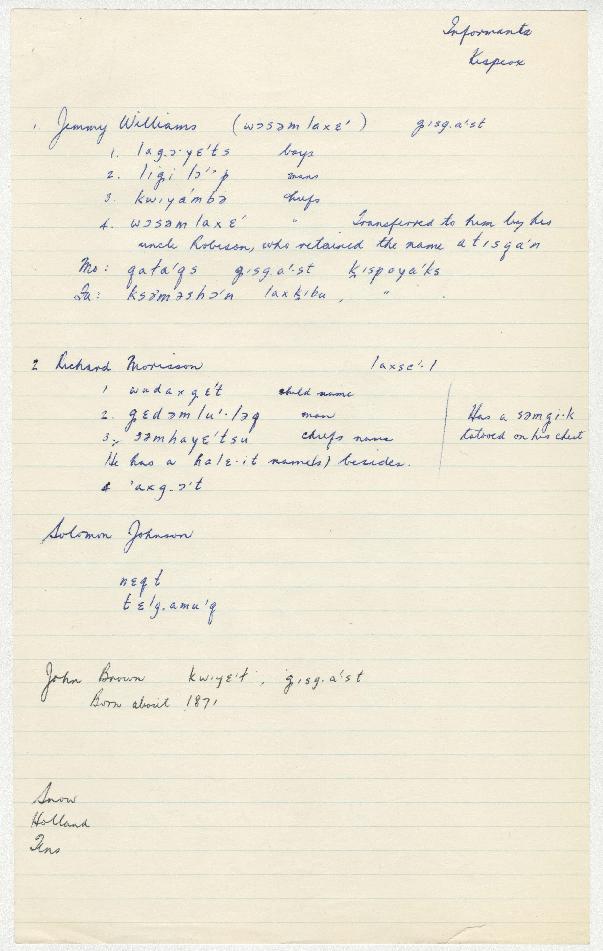 Informants
Kispiox
1. Jimmy Williams (wɔsəmlaxɛ') g̣ɪsg.a'st
1. lag.ɔ·yɛ'ts boys
2. ligi lɔ''p mans
3. kwɪya'mbə chiefs
4. wɔsəm laxɛ' " Transferred to him by his
uncle Robison, who retained the name atɪsga'n
Mo: qata'qs gɪsg.a'st Ḳɪspəya'ks
Fa: ksə'məshə'n laxḳibu, "
2 Richard Morisson laxsɛ'·l
1 wudaxgɛ't child name
2. gɛdəm lu'·ləq man
3. səmhayɛ'tsu chiefs name
He has a halɛ·it name(s) besides.
4 'axg.ɔ't
Has a səmgi·k
tatooed on his chest
Solomon Johnson
nɛqt
tɛ'lg.amu'q
John Brown kwɪyɛ't, gɪsg.a'st
Born about 1871
Snow
Holland
Tens